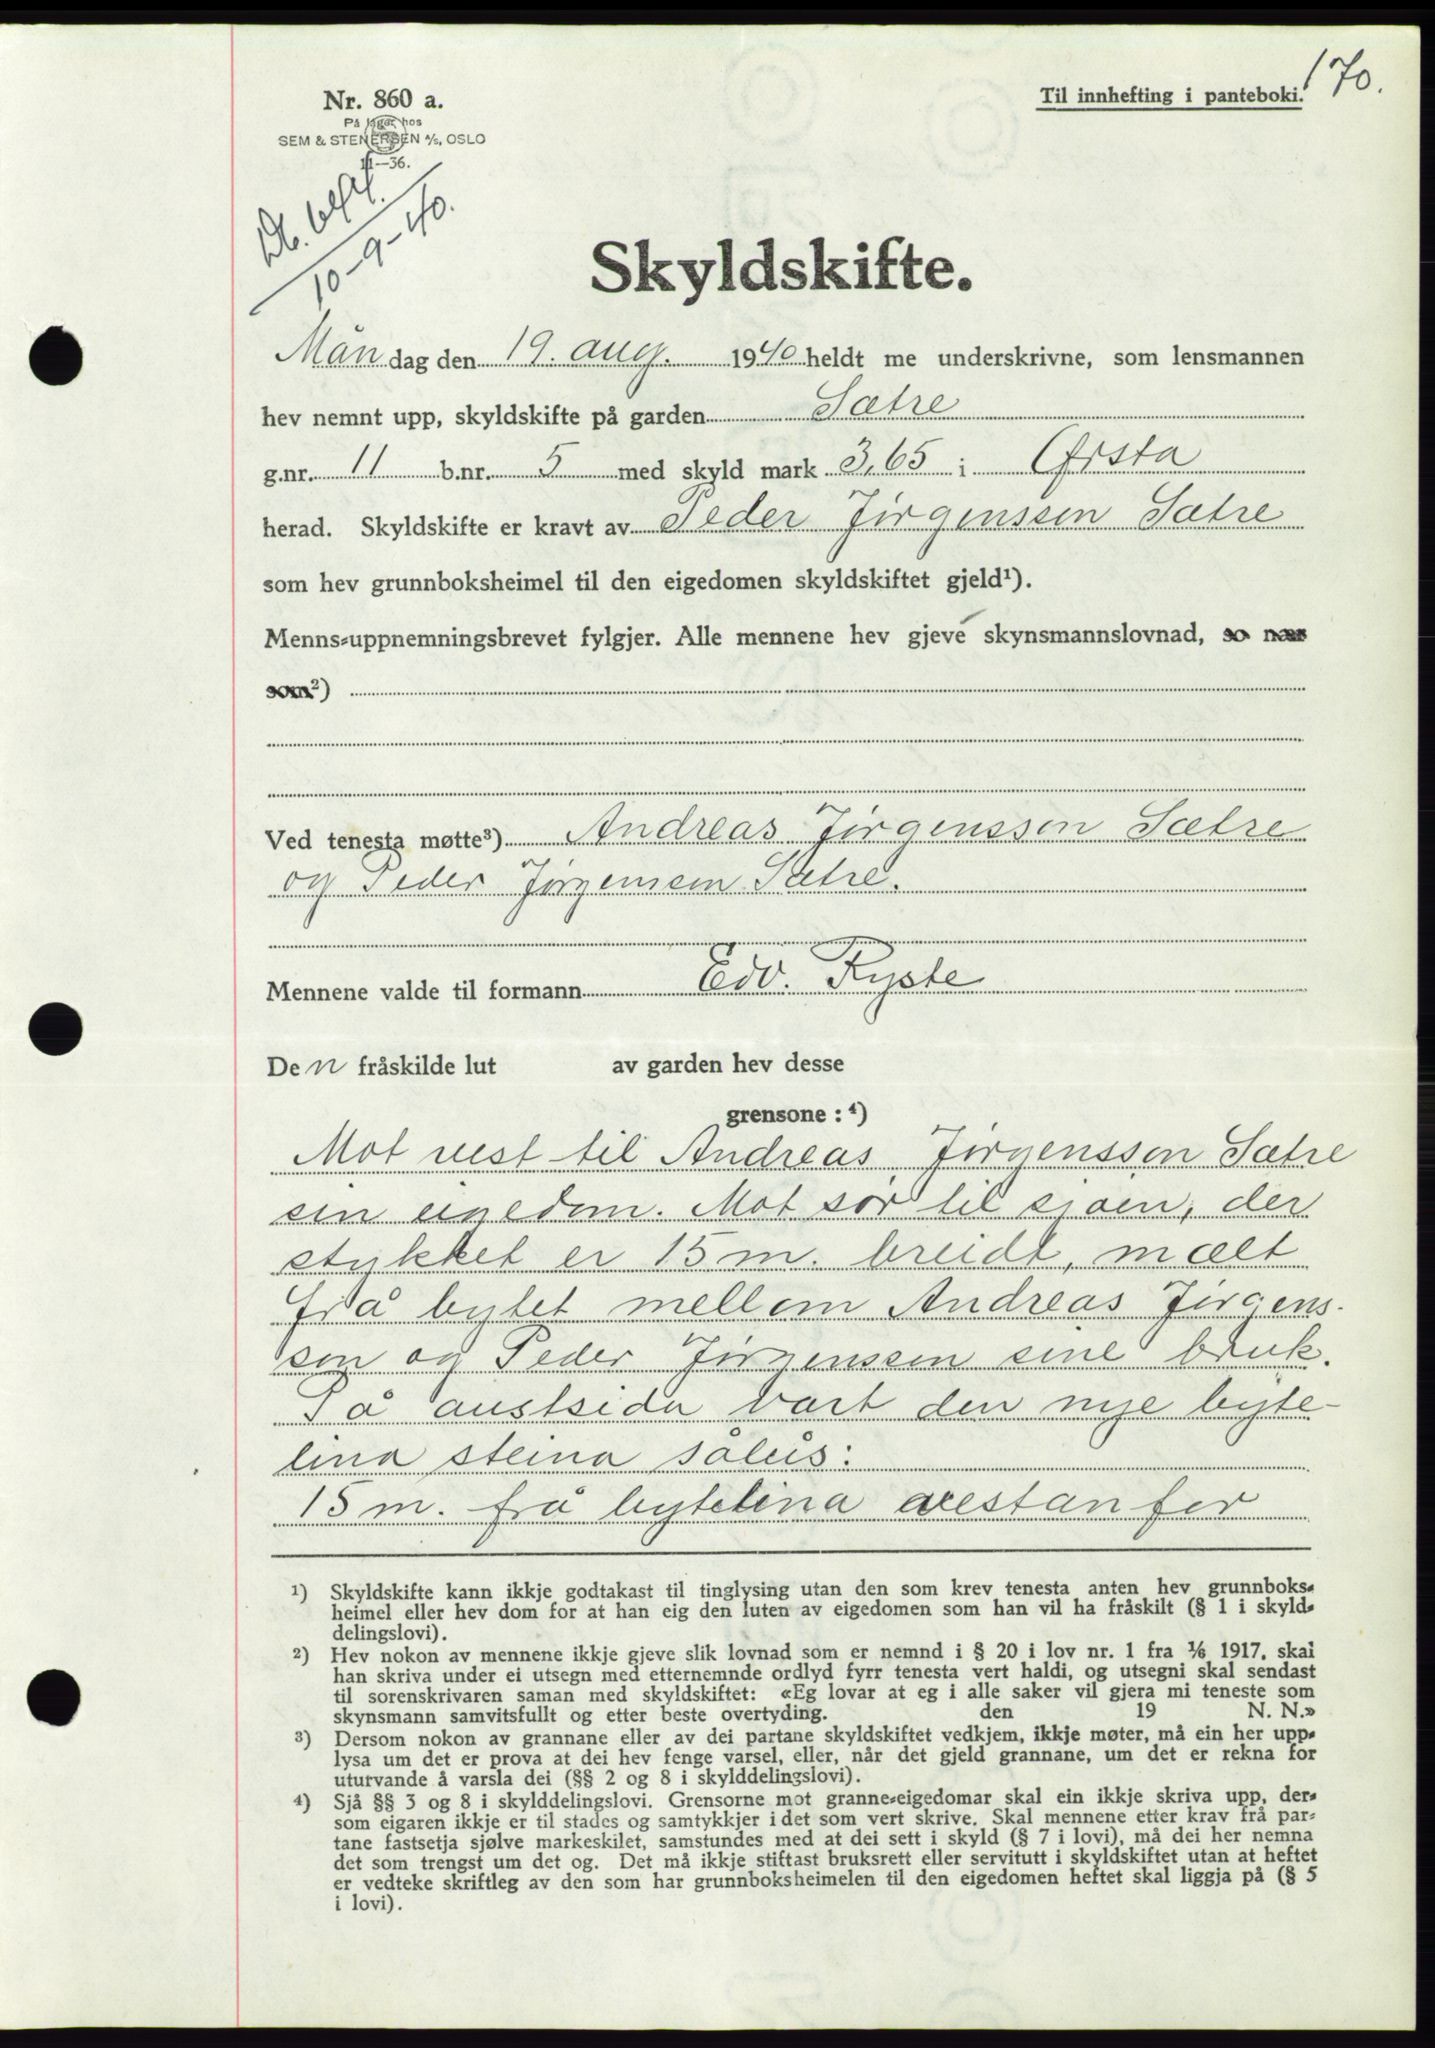 170.
Nr. 860 a.
Til innhefting i panteboki.
På lager hos
SEM & STENERSEN A/S, OSLO
11—36.
10-9-40.
Skyldskifte.
Måndag den 19. aug. 1940 heldt me underskrivne, som lensmannen
hev nemnt upp, skyldskifte på garden Sætre
g.nr. 11 b.nr. 5 med skyld mark 3,65 i Ørsta
herad. Skyldskifte er kravt av Peder Jørgenssen Sætre
som hev grunnboksheimel til den eigedomen skyldskiftet gjeld¹).
Menns-uppnemningsbrevet fylgjer. Alle mennene hev gjevé skynsmannslovnad, so nær
som²)
Ved tenesta møtte³) Andreas Jørgensson Sætre
og Peder Jørgenssen Sætre.
Mennene valde til formann Edv. Ryste
Den fråskilde lut av garden hev desse
grensone : ⁴)
Mot vest til Andreas Jørgensson Sætre
sin eigedom. Mot sør til sjøen, der
stykket er 15 m. breidt, mælt
frå bytet mellom Andreas Jørgens-
son og Peder Jørgenssen sine bruk.
På austsida vart den nye byte-
lina steina såleis:
15 m. frå bytelina vestanfor
¹) Skyldskifte kann ikkje godtakast til tinglysing utan den som krev tenesta anten hev grunnboks-
heimel eller hev dom for at han eig den luten av eigedomen som han vil ha fråskilt (§ 1 i skyld-
delingslovi).
²) Hev nokon av mennene ikkje gjeve slik lovnad som er nemnd i § 20 i lov nr. 1 fra 1/6 1917, skal
han skriva under ei utsegn med etternemnde ordlyd fyrr tenesta vert haldi, og utsegni skal sendast
til sorenskrivaren saman med skyldskiftet: «Eg lovar at eg i alle saker vil gjera mi teneste som
skynsmann samvitsfullt og etter beste overtyding. den 19 N. N.»
³) Dersom nokon av grannane eller av dei partane skyldskiftet vedkjem, ikkje møter, må ein her upp-
lysa um det er prova at dei hev fenge varsel, eller, når det gjeld grannane, um det er rekna for
uturvande å varsla dei (§§ 2 og 8 i skylddelingslovi).
⁴) Sjå §§ 3 og 8 i skylddelingslovi. Grensorne mot granne-eigedomar skal ein ikkje skriva upp, der-
som eigaren ikkje er til stades og samtykkjer i det som vert skrive. Skal mennene etter krav frå par-
tane fastsetja sjølve markeskilet, samstundes med at dei sett i skyld (§ 7 i lovi), må dei her nemna
det som trengst um det og. Det må ikkje stiftast bruksrett eller servitutt i skyldskiftet utan at heftet
er vedteke skriftleg av den som har grunnboksheimelen til den eigedomen heftet skal liggja på (§ 5
i lovi).